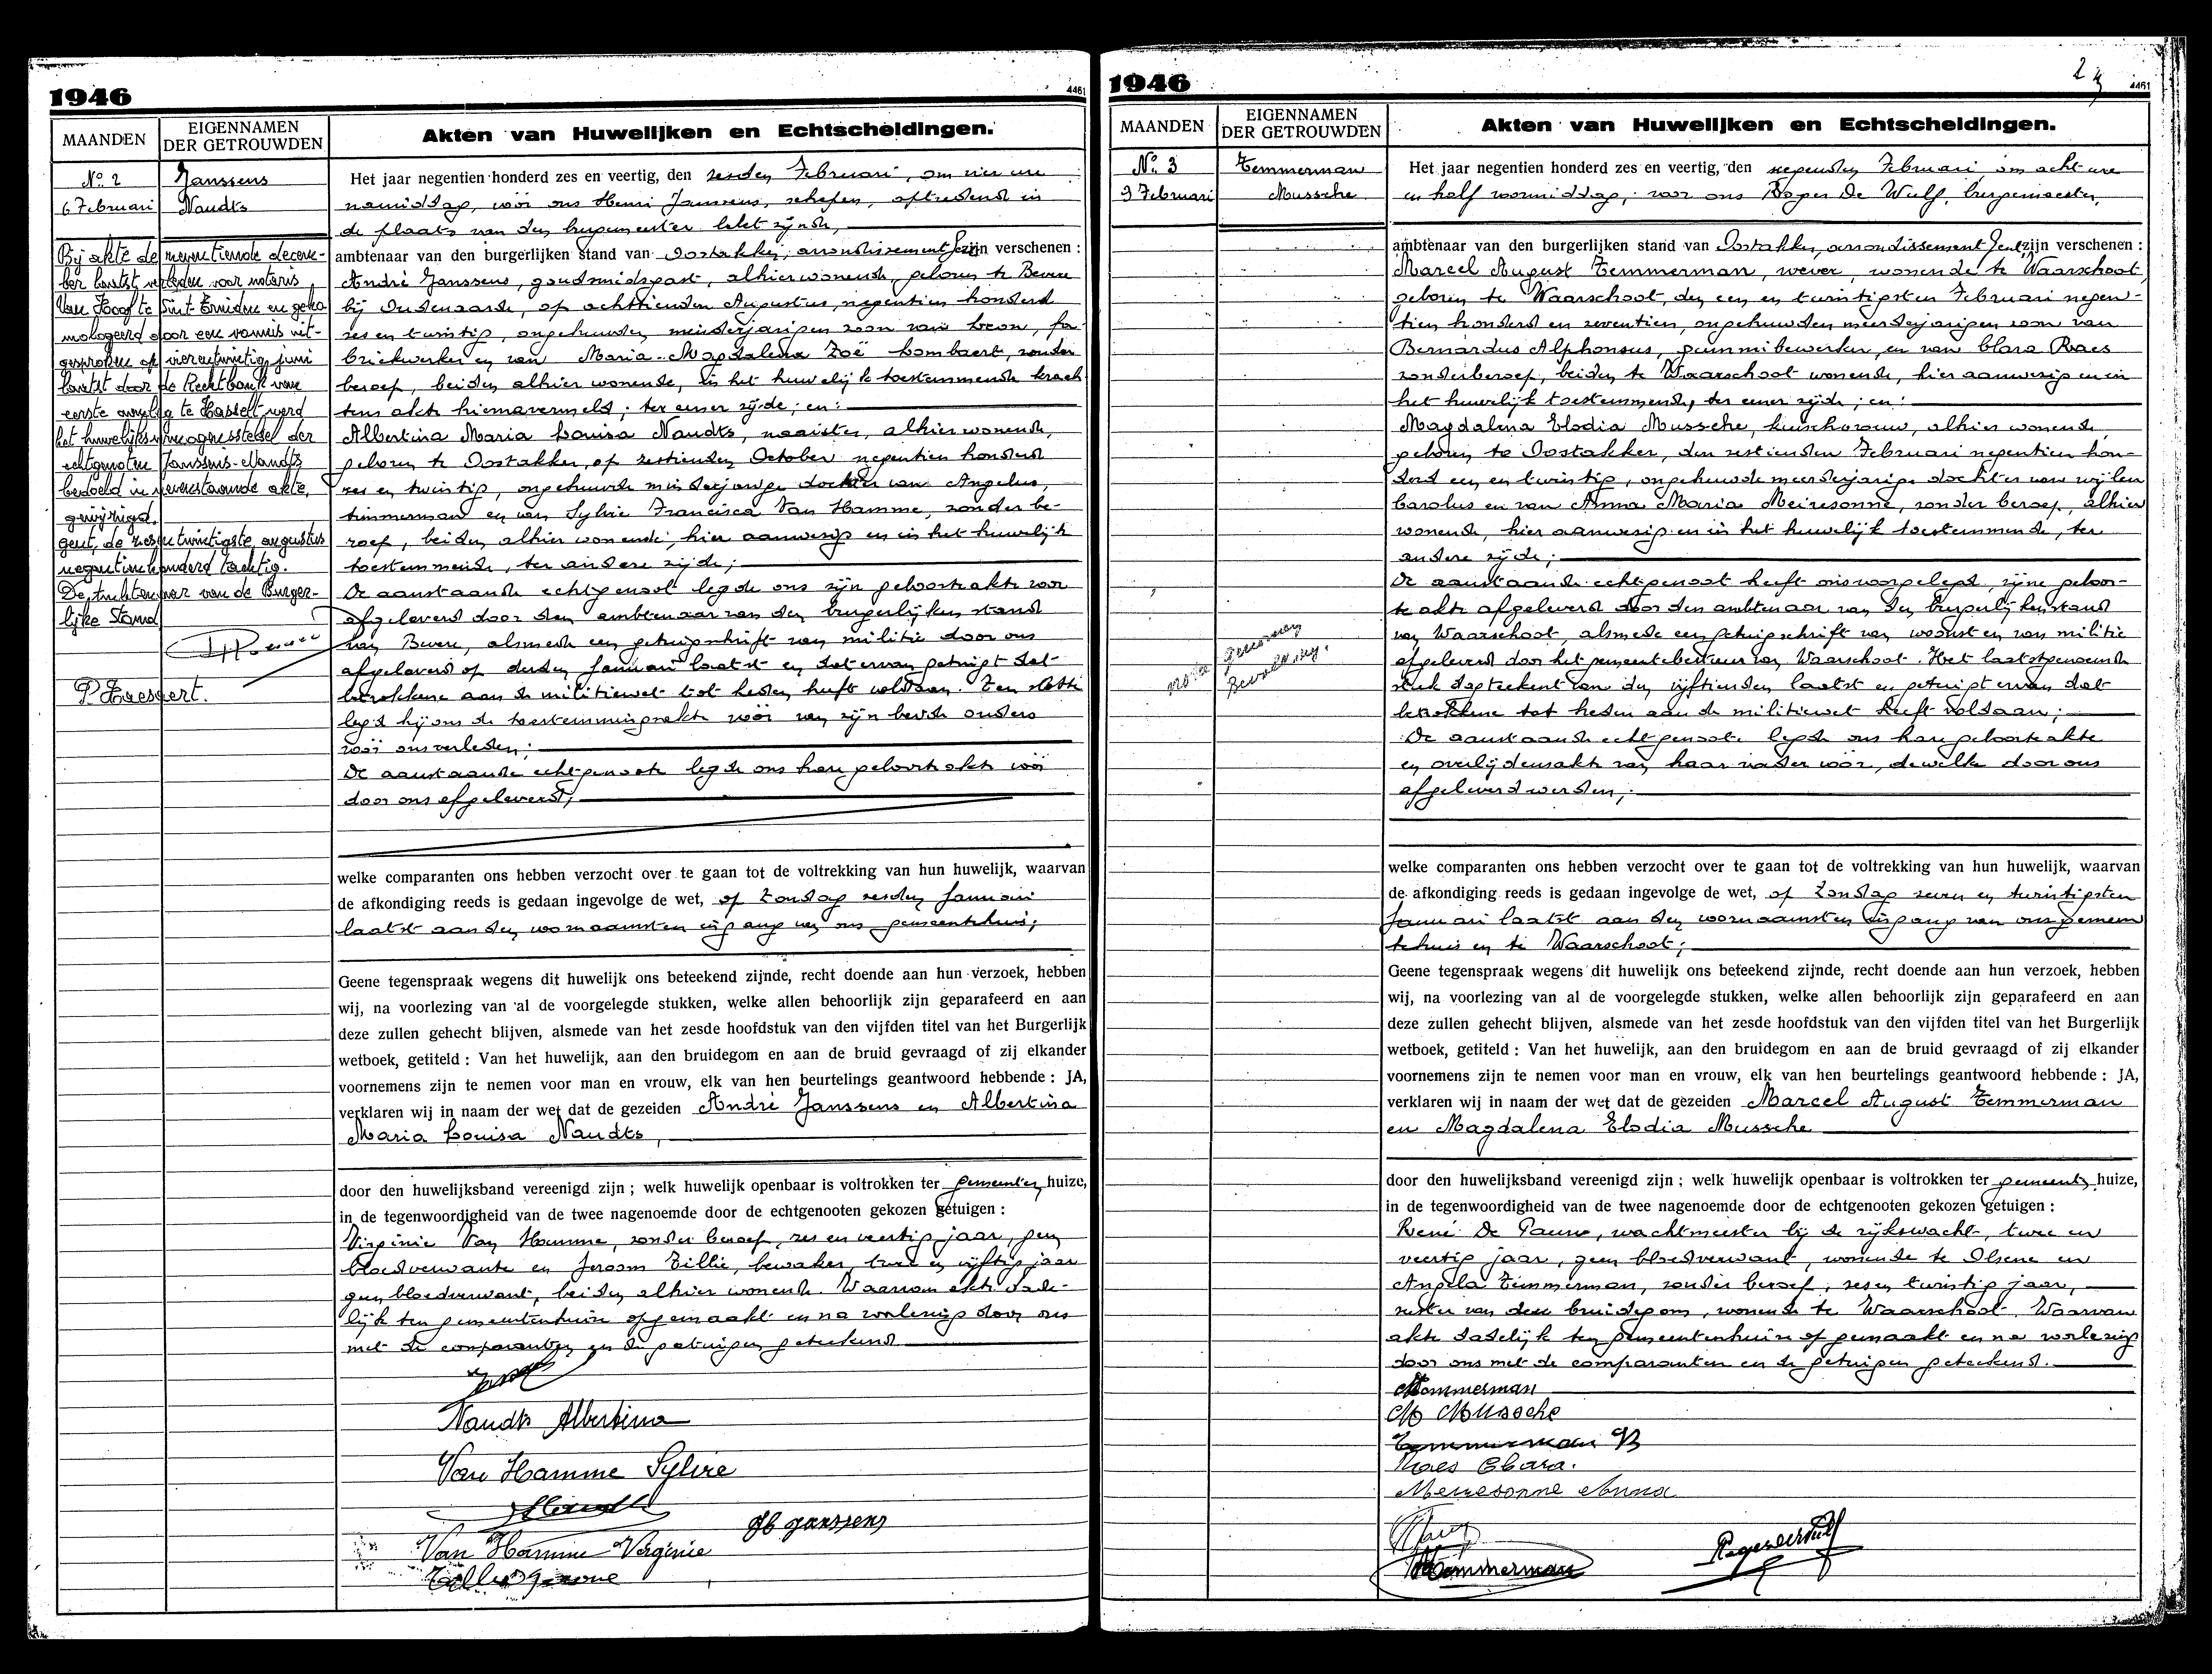 1946
4461
MAANDEN
EIGENNAMEN
DER GETROUWDEN
Akten van Huwelijken en Echtscheidingen.
No. 2
6 Februari
Janssens
Naudts
Bij akte de negentiende decem-
ber laatst verleden voor notaris
Van Hoof te Sint-Truiden en geho-
mologeerd door een vonnis uit-
gesproken op vierentwintig juni
laatst door de Rechtbank van
eerste aanleg te Hasselt werd
het huwelijksvermogensstelsel der
echtgenoten Janssens-Naudts
bedoeld in nevenstaande akte,
gewijzigd.
Gent, de zesentwintigste augustus
negentienhonderd tachtig.
De ambtenaar van de Burger-
lijke Stand
Het jaar negentien honderd zes en veertig, den zesden Februari, om vier ure
namiddag, vóór ons Henri Janssens, schepen, optredend in
de plaats van den burgemeester belet zijnde,
ambtenaar van den burgerlijken stand van Oostakker, arrondissement Gent zijn verschenen :
André Janssens, goudsmidsgast, alhier wonende, geboren te Bevere
bij Oudenaarde, op achttienden Augustus, negentien honderd
zes en twintig, ongehuwden minderjarigen zoon van Leon, fa-
briekwerker en van Maria-Magdalena Zoë Lombaert, zonder
beroep, beiden alhier wonende, in het huwelijk toestemmende krach-
tens akte hiernavermeld; ter eener zijde; en:
Albertina Maria Louisa Naudts, naaister, alhier wonende,
geboren te Oostakker, op zestienden October negentien honderd
zes en twintig, ongehuwde minderjarige dochter van Angelus,
timmerman en van Sylvie Francisca Van Hamme, zonder be-
roep, beiden alhier wonende, hier aanwezig en in het huwelijk
toestemmende, ter andere zijde;
De aanstaande echtgenoot legde ons zijn geboorteakte voor
afgeleverd door den ambtenaar van den burgerlijken stand
van Bevere, alsmede een getuigschrift van militie door ons
afgeleverd op derden Januari laatst en dat ervan getuigt dat
betrokkene aan de militiewet tot heden heeft voldaan. Ten slotte
legd hij ons de toestemmingsakte vóór van zijn beide ouders
vóór ons verleden;
De aanstaande echtgenoote legde ons hare geboorteakte vóór
door ons afgeleverd;
welke comparanten ons hebben verzocht over te gaan tot de voltrekking van hun huwelijk, waarvan
de afkondiging reeds is gedaan ingevolge de wet, op Zondag zesden Januari
laatst aan den voornaamsten ingang van ons gemeentehuis;
Geene tegenspraak wegens dit huwelijk ons beteekend zijnde, recht doende aan hun verzoek, hebben
wij, na voorlezing van al de voorgelegde stukken, welke allen behoorlijk zijn geparafeerd en aan
deze zullen gehecht blijven, alsmede van het zesde hoofdstuk van den vijfden titel van het Burgerlijk
wetboek, getiteld : Van het huwelijk, aan den bruidegom en aan de bruid gevraagd of zij elkander
voornemens zijn te nemen voor man en vrouw, elk van hen beurtelings geantwoord hebbende : JA,
verklaren wij in naam der wet dat de gezeiden André Janssens en Albertina
Maria Louisa Naudts,
door den huwelijksband vereenigd zijn ; welk huwelijk openbaar is voltrokken ter gemeenten huize,
in de tegenwoordigheid van de twee nagenoemde door de echtgenooten gekozen getuigen :
Virginie Van Hamme, zonder beroep, zes en veertig jaar, geen
bloedverwante en Jeroom Tillie, bewaker, twee en vijftig jaar
geen bloedverwant, beiden alhier wonende. Waarvan akte dade-
lijk ten gemeentenhuize opgemaakt en na voorlezing door ons
met de comparanten en de getuigen geteekend.
Naudts Albertina
Van Hamme Sylvie
H Janssens
Van Hamme Virginie
1946
4461
MAANDEN
EIGENNAMEN
DER GETROUWDEN
Akten van Huwelijken en Echtscheidingen.
No. 3
9 Februari
Temmerman
Mussche
Het jaar negentien honderd zes en veertig, den negenden Februari, om acht ure
en half voormiddag, voor ons Roger De Wulf, burgemeester,
ambtenaar van den burgerlijken stand van Oostakker, arrondissement Gent zijn verschenen :
Marcel August Temmerman, wever, wonende te Waarschoot,
geboren te Waarschoot, den een en twintigsten Februari negen-
tien honderd en zeventien, ongehuwden meerderjarigen zoon van
Bernardus Alphonsus, gummibewerker, en van Clara Raes
zonder beroep, beiden te Waarschoot wonende, hier aanwezig en in
het huwelijk toestemmende, ter eener zijde; en:
Magdalena Elodia Mussche, kuischvrouw, alhier wonende,
geboren te Oostakker, den zestienden Februari negentien hon-
derd een en twintig, ongehuwde meerderjarige dochter van wijlen
Carolus en van Anna Maria Meiresonne, zonder beroep, alhier
wonende, hier aanwezig en in het huwelijk toestemmende, ter
andere zijde;
De aanstaande echtgenoot heeft ons voorgelegd, zijne geboor-
te akte afgeleverd door den ambtenaar van den burgerlijken stand
van Waarschoot, alsmede een getuigschrift van woonst en van militie
afgeleverd door het gemeentebestuur van Waarschoot. Het laatstgenoemde
stuk dagteekent van den vijftienden laatst en getuigt ervan dat
betrokkene tot heden aan de militiewet heeft voldaan;
De aanstaande echtgenoote legde ons hare geboorteakte
en overlijdensakte van haar vader vóór, dewelke door ons
afgeleverd werden;
nota genomen
Bevolking.
welke comparanten ons hebben verzocht over te gaan tot de voltrekking van hun huwelijk, waarvan
de afkondiging reeds is gedaan ingevolge de wet, op Zondag zeven en twintigsten
Januari laatst aan den voornaamsten ingang van ons gemeen
tehuis en te Waarschoot;
Geene tegenspraak wegens dit huwelijk ons beteekend zijnde, recht doende aan hun verzoek, hebben
wij, na voorlezing van al de voorgelegde stukken, welke allen behoorlijk zijn geparafeerd en aan
deze zullen gehecht blijven, alsmede van het zesde hoofdstuk van den vijfden titel van het Burgerlijk
wetboek, getiteld : Van het huwelijk, aan den bruidegom en aan de bruid gevraagd of zij elkander
voornemens zijn te nemen voor man en vrouw, elk van hen beurtelings geantwoord hebbende : JA,
verklaren wij in naam der wet dat de gezeiden Marcel August Temmerman
en Magdalena Elodia Mussche
door den huwelijksband vereenigd zijn ; welk huwelijk openbaar is voltrokken ter gemeenten huize,
in de tegenwoordigheid van de twee nagenoemde door de echtgenooten gekozen getuigen :
René De Pauw, wachtmeester bij de rijkswacht, twee en
veertig jaar, geen bloedverwant, wonende te Olsene en
Angela Temmerman, zonder beroep, zes en twintig jaar,
zuster van deze bruidegom, wonende te Waarschoot. Waarvan
akte dadelijk ten gemeentenhuize opgemaakt en na voorlezing
door ons met de comparanten en de getuigen geteekend.
Temmerman
M Mussche
Temmerman B
Raes Clara.
Meiresonne Anna
Temmerman
Roger De Wulf